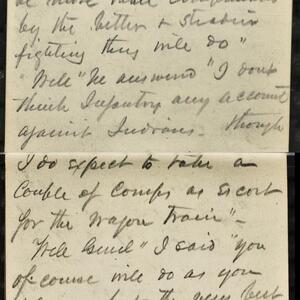 by the better & steadier
fighting they will do"
"Well" he answered "I dont
think Infantry any account
against Indians – though
I do expect to take a
Couple of Comps as Escort
for the Wagon Train" –
"Well Genl" I said "you
of course will do as you
best